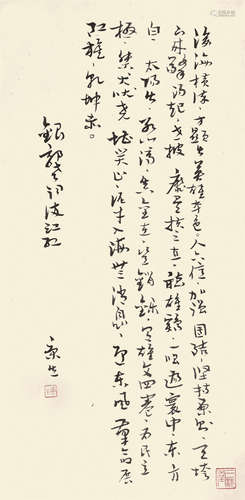 沧海横流，方显出英雄本色。人六亿，加强团结，坚持原则。天垮
下来擎得起，世披靡矣扶之直。听雄鸡一唱遍寰中，东方
白。太阳出，冰山滴，真金在，岂销铄，有雄文四卷，为民立
极。桀犬吠尧堪笑止，泥牛入海无消息。迎东风革命展
红旗，乾坤赤。
錄郭老词满江红
康生